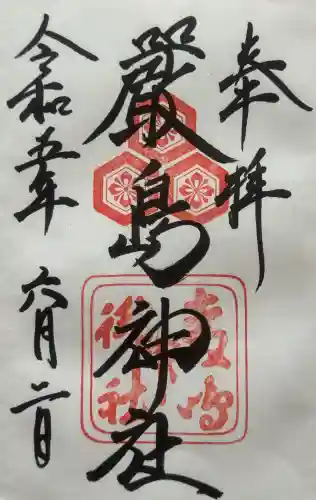 奉拝
嚴島神社
令和五年
六月二日
嚴島
御社